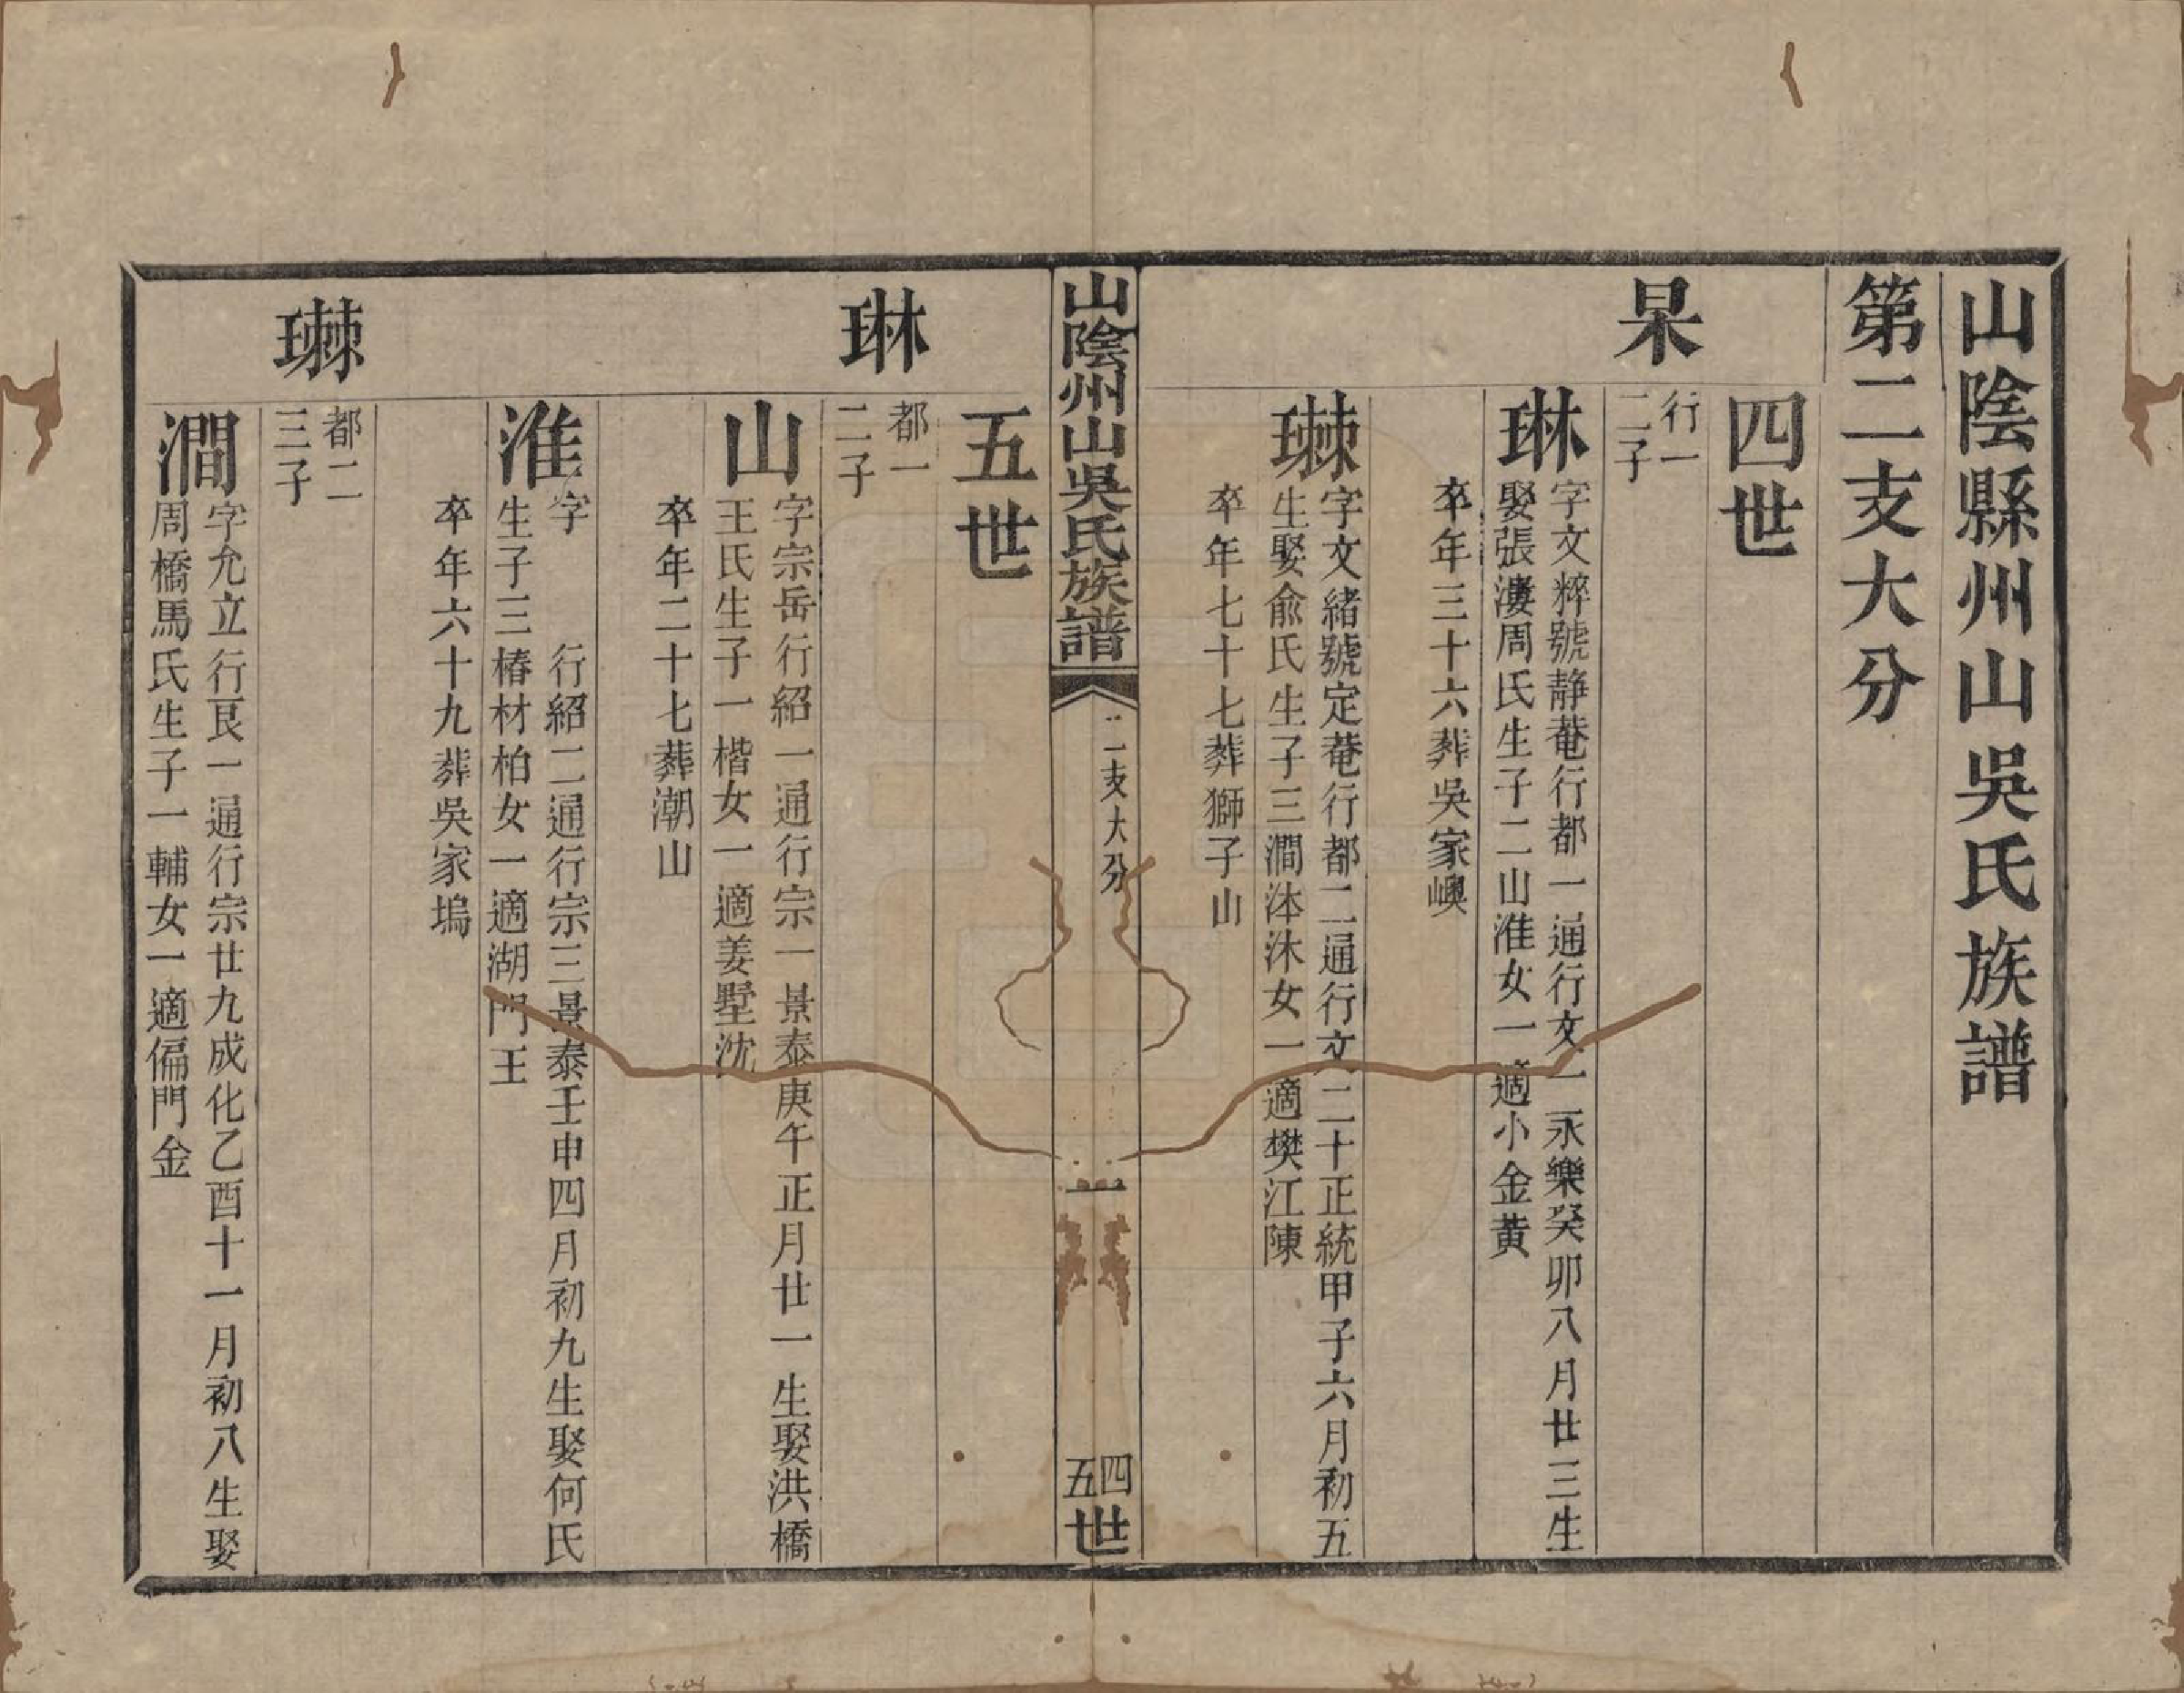 山陰縣州山吳氏族譜
第二支大分
四世
杲
行一
二子
琳
字文粹號静菴行都一通行文一永樂癸卯八月廿三生
娶張漊周氏生子二山淮女一適小金黄
卒年三十六葬吳家㠗
字文緒號定菴行都二通行文二十正統甲子六月初五
生娶俞氏生子三澗沐女一適樊江陳
卒年七十七葬獅子山
山陰州山吳氏族譜
二支大分
一
四五世
五世
琳
都一
二子
山
字宗岳行紹一通行宗一景泰庚午正月廿一生娶洪橋
王氏生子一楷女一適姜墅沈
卒年二十七葬潮山
淮
字 行紹二通行宗三景泰壬申四月初九生娶何氏
生子三椿材柏女一適湖門王
卒年六十九葬吳家塢
都二
三子
澗
字允立行艮一通行宗廿九成化乙酉十一月初八生娶
周橋馬氏生子一輔女一適偏門金